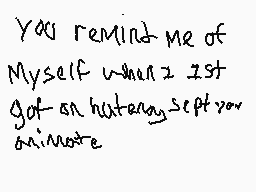 you remind me of
Myself when I 1st
got on hatenay sept you
animate